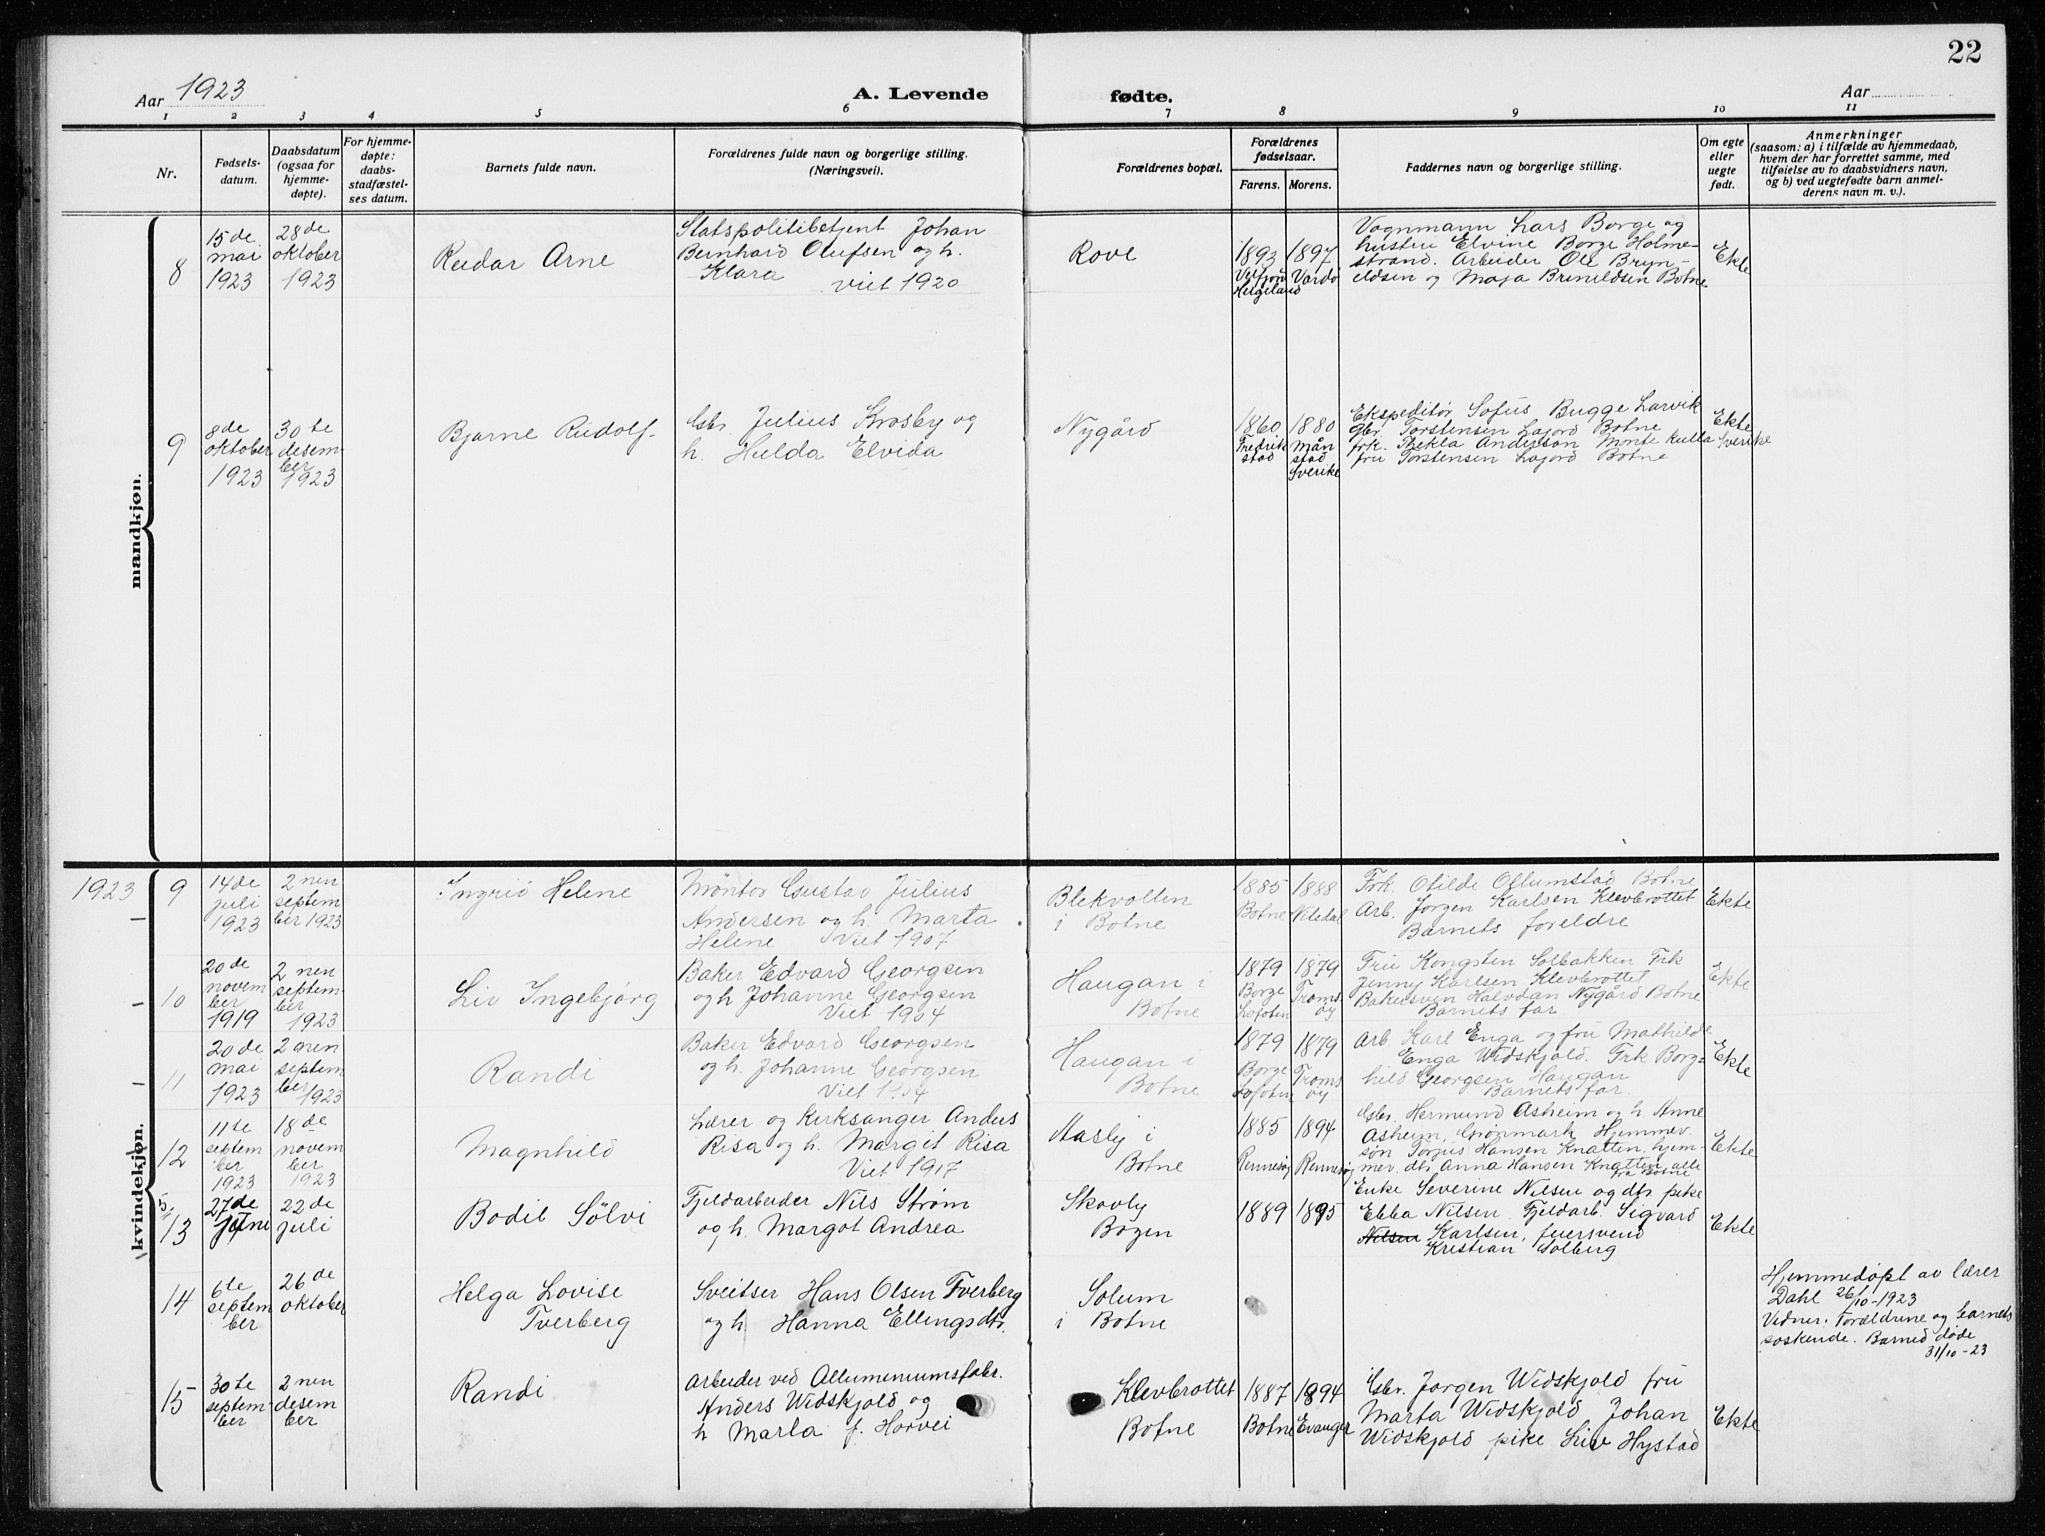 22
Aar 1923
A. Levende fødte.
Aar
1 2 3 4 5 6 7 8 9 10 11
Nr.
Fødsels-
datum.
Daabsdatum
(ogsaa for
hjemme-
døpte).
For hjemme-
døpte:
daabs-
stadfæstel-
ses datum.
Barnets fulde navn.
Forældrenes fulde navn og borgerlige stilling.
(Næringsvei).
Forældrenes bopæl.
Forældrenes
fødselsaar.
Farens. Morens.
Faddernes navn og borgerlige stilling.
Om egte
eller
uegte
født.
Anmerkninger
(saasom: a) i tilfælde av hjemmedaab,
hvem der har forrettet samme, med
tilføielse av to daabsvidners navn,
og b) ved uegtefødte barn anmel-
derens navn m. v.).
mandkjøn.
8
15de
mai
1923
28de
oktober
1923
Reidar Arne
Statspolitibetjent Johan
Bernhard Olufsen og h.
Klara
Viet 1920
Rove
1893
Helgeland
1897
Vardø
Vognmann Lars Borge og
hustru Elvine Borge Holme-
strand. Arbeider Ole Bryn-
ildsen og Maja Brynildsen Botne
Ekte
9
8de
oktober
1923
30te
desem-
ber
1923
Bjarne Rudolf
Gbr. Julius Krosby og
h. Hulda Elvida
Nygård
1860
Fredrik
stad
1880
Mån
stad
Sverike
Ekspeditør Sofus Bugge Larvik
Gbr. Torstensen Lajord Botne
frk. Thekla Anderson Kulla Sverike
fru Torstensen Lajord Botne
Ekte
kvindekjøn.
1923
9
14de
juli
1923
2nen
septem
ber 1923
Ingrid Helene
Montør Gustav Julius
Andersen og h. Marta
Helene Viet 1907
Blekvollen
i Botne
1885
Botne
1888
Nitedal
Frk. Otilde Ollumstad Botne
Arb. Jørgen Karlsen Klevbrottet
Barnets foreldre
Ekte
10
20de
novem
ber
1919
2nen
septem-
ber
1923
Liv Ingebjørg
Baker Edvard Georgsen
og h Johanne Georgsen
Viet 1904
Haugan i
Botne
1879
Borge
Lofoten
1879
Troms
øy
Fru Kongsten Solbakken Frk
Jenny Karlsen Klevbrottet
Bakersven Halvdan Nygård Botne
Barnets far
Ekte
11
20de
mai
1923
2nen
septem
ber 1923
Randi
Baker Edvard Georgsen
og h. Johanne Georgsen
Viet 1904
Haugan i
Botne
1879
Borge
Lofoten
1879
Troms
øy
Arb. Karl Enga og fru Mathilde
Enga Widskjold. Frk Borg-
hild Georgsen Haugan
Barnets far.
Ekte
12
11te
septem
ber
1923
18de
novem
ber
1923
Magnhild
Lærer og Kirksanger Anders
Risa og h. Margit Risa
Viet 1917
Aasly i
Botne
1885
Rennesøy
1894
Rennesøy
Gbr. Hermund Asheim og h. Anne
Asheim, Grønmark Hjemmev.
søn Torjus Hansen Knatten, hjem-
mev. dtr Anna Hansen Knatten alle
fra Botne
Ekte
13
27de
juni
22de
juli
Bodil Sölvi
Fjeldarbeider Nils Strøm
og h. Margot Andrea
Skovly
Bogen
1889
1895
Enke Severine Nilsen og dtr pike
Ebba Nilsen Fjeldarb. Sigvard
Nilsen Karlsen, feiersvend
Kristian Solberg
Ekte
14
6te
septem
ber
26de
oktober
Helga Lovise
Tverberg
Sveitser Hans Olsen Tverberg
og h. Hanna Ellingsdtr.
Solum
i Botne
Hjemmedøpt av lærer
Dahl 26/10-1923
Vidner: Forældrene og barnets
søskende. Barnet døde
31/10-23
15
30te
septem-
ber
2nen
desem
ber
Randi
Arbeider ved Allumeniumsfabr.
Anders Widskjold og
h Marta f. Horvei
Klevbrottet
Botne
1887
Botne
1894
Evanger
Gbr. Jørgen Widskjold fru
Marta Widskjold Johan
Widskjold pike Liv Hystad
Ekte